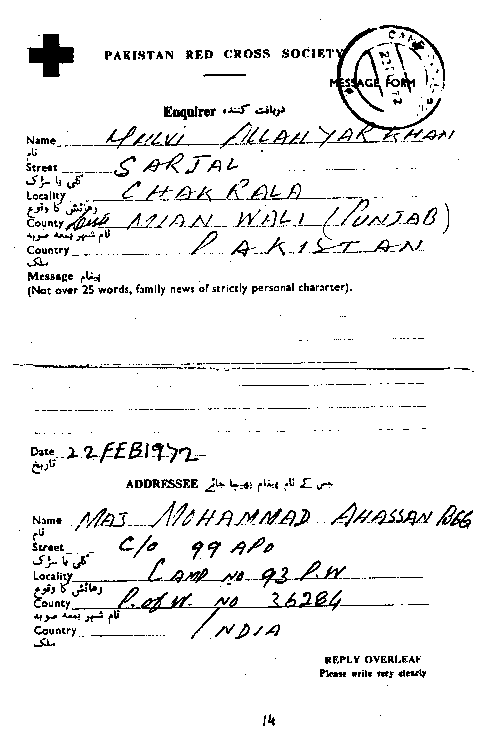 PAKISTAN RED CROSS SOCIETY
MESSAGE FORM
Enquirer دریافت کنندہ
Name MULVI ALLAH YAR KHAN
نام
Street SARJAL
گلی یا سڑک
Locality CHAKRALA
رھائش کا وقوع
County MIAN WALI (PUNJAB)
نام شہر بمعہ صوبہ
Country PAKISTAN
ملک
Message پیغام
(Not over 25 words, family news of strictly personal character).
Date 22 FEB 1972
تاریخ
ADDRESSEE جس کے نام پیغام بھیجا جائے
Name MAJ MOHAMMAD AHASSAN BEG
نام
Street C/o 99 APO
گلی یا سڑک
Locality CAMP NO 93 P.W
رھائش کا وقوع
County P. of W. NO 36284
نام شہر بمعہ صوبہ
Country INDIA
ملک
REPLY OVERLEAF
Please write very clearly
14